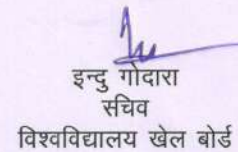 इन्दु गोदारा
सचिव
विश्वविद्यालय खेल बोर्ड